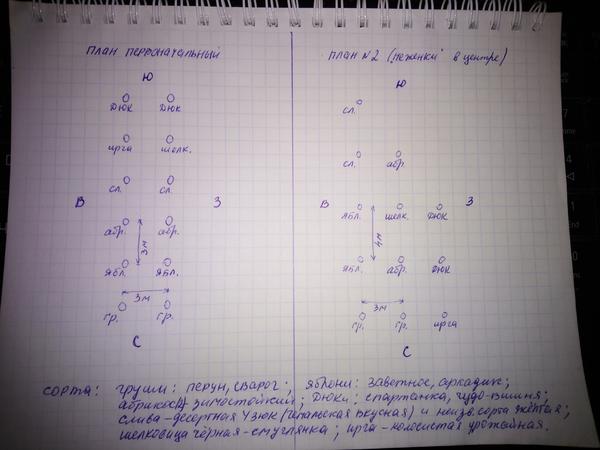 план первоначальный
Ю
Дюк Дюк
ирга шелк.
В сл. сл. З
абр. абр.
3м
ябл. ябл.
3м
гр. гр.
С
план №2 (неженки в центре)
Ю
сл.
сл. абр.
В З
ябл. шелк. Дюк
4м
ябл. абр. Дюк
3м
гр. гр. ирга
С
сорта: груши: перун, сварог; яблони: заветное, аркадик;
абрикосы зимостойкий; Дюки: спартанка, чудо-вишня;
слива-десертная 4 узюк вкусная) и неизв. сорта жёлтая;
шелковица чёрная-смуглянка; ирга-колосистая урожайная.